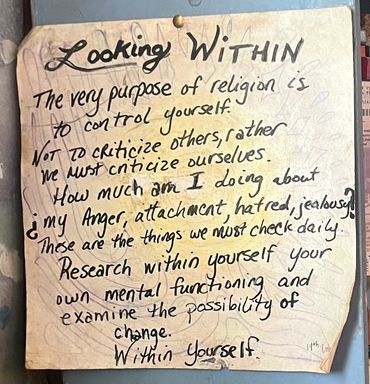 Looking WITHIN
The very purpose of religion is
to control yourself.
NOT TO criticize others, rather
we must criticize ourselves.
How much am I doing about
¿my Anger, attachment, hatred, jealousy?
These are the things we must check daily.
Research within yourself your
own mental functioning and
examine the possibility of
change.
Within yourself.